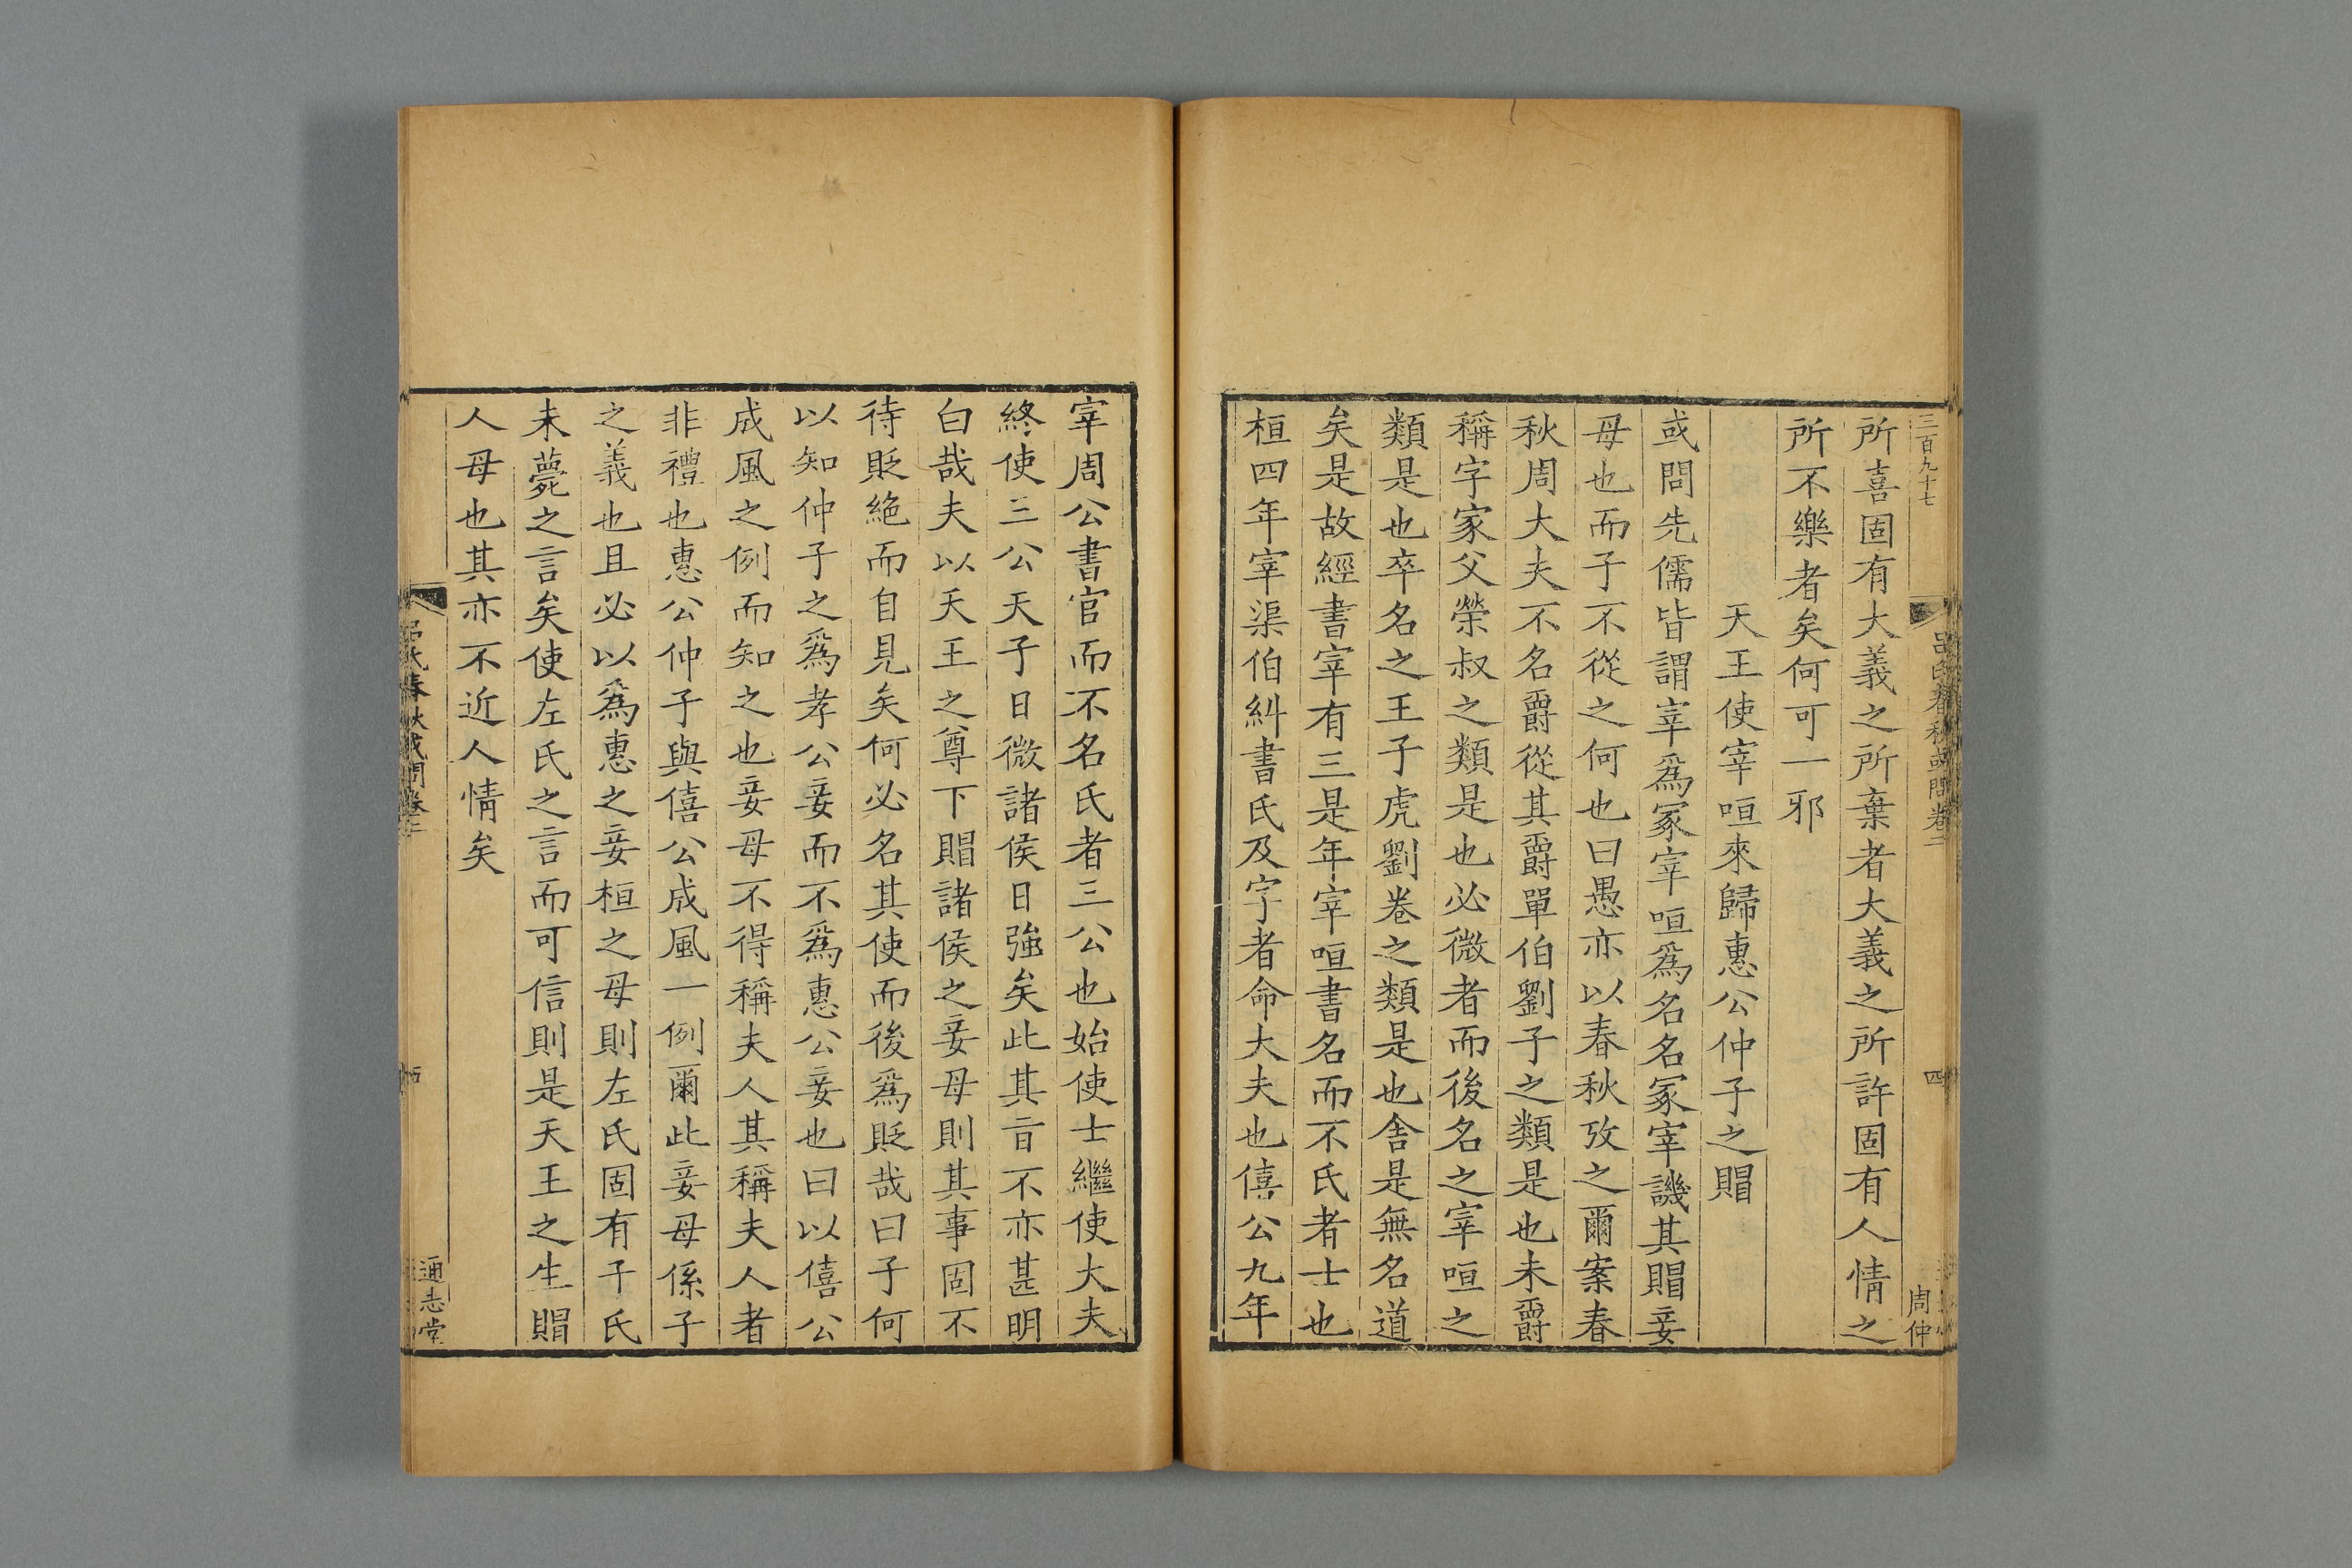 三百九十七
呂氏春秋或問卷二
四
周仲
所喜固有大義之所棄者大義之所許固有人情之
所不樂者矣何可一邪
天王使宰咺來歸惠公仲子之賵
或問先儒皆謂宰爲冢宰咺爲名名冢宰譏其賵妾
母也而子不從之何也曰愚亦以春秋攷之爾案春
秋周大夫不名爵從其爵單伯劉子之類是也未爵
稱字家父榮叔之類是也必微者而後名之宰咺之
類是也卒名之王子虎劉卷之類是也舍是無名道
矣是故經書宰有三是年宰咺書名而不氏者士也
桓四年宰渠伯糾書氏及字者命大夫也僖公九年
宰周公書官而不名氏者三公也始使士繼使大夫
終使三公天子日微諸侯日強矣此其旨不亦甚明
白哉夫以天王之尊下賵諸侯之妾母則其事固不
待貶絕而自見矣何必名其使而後爲貶哉曰子何
以知仲子之爲孝公妾而不爲惠公妾也曰以僖公
成風之例而知之也妾母不得稱夫人其稱夫人者
非禮也惠公仲子與僖公成風一例爾此妾母係子
之義也且必以爲惠之妾桓之母則左氏固有子氏
未薨之言矣使左氏之言而可信則是天王之生賵
人母也其亦不近人情矣
呂氏春秋或問卷二
五
通志堂